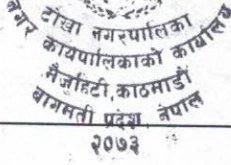 टोखा नगरपालिका
नगर कार्यपालिकाको कार्यालय
मैजहिटी, काठमाडौँ
बागमती प्रदेश, नेपाल
२०७३